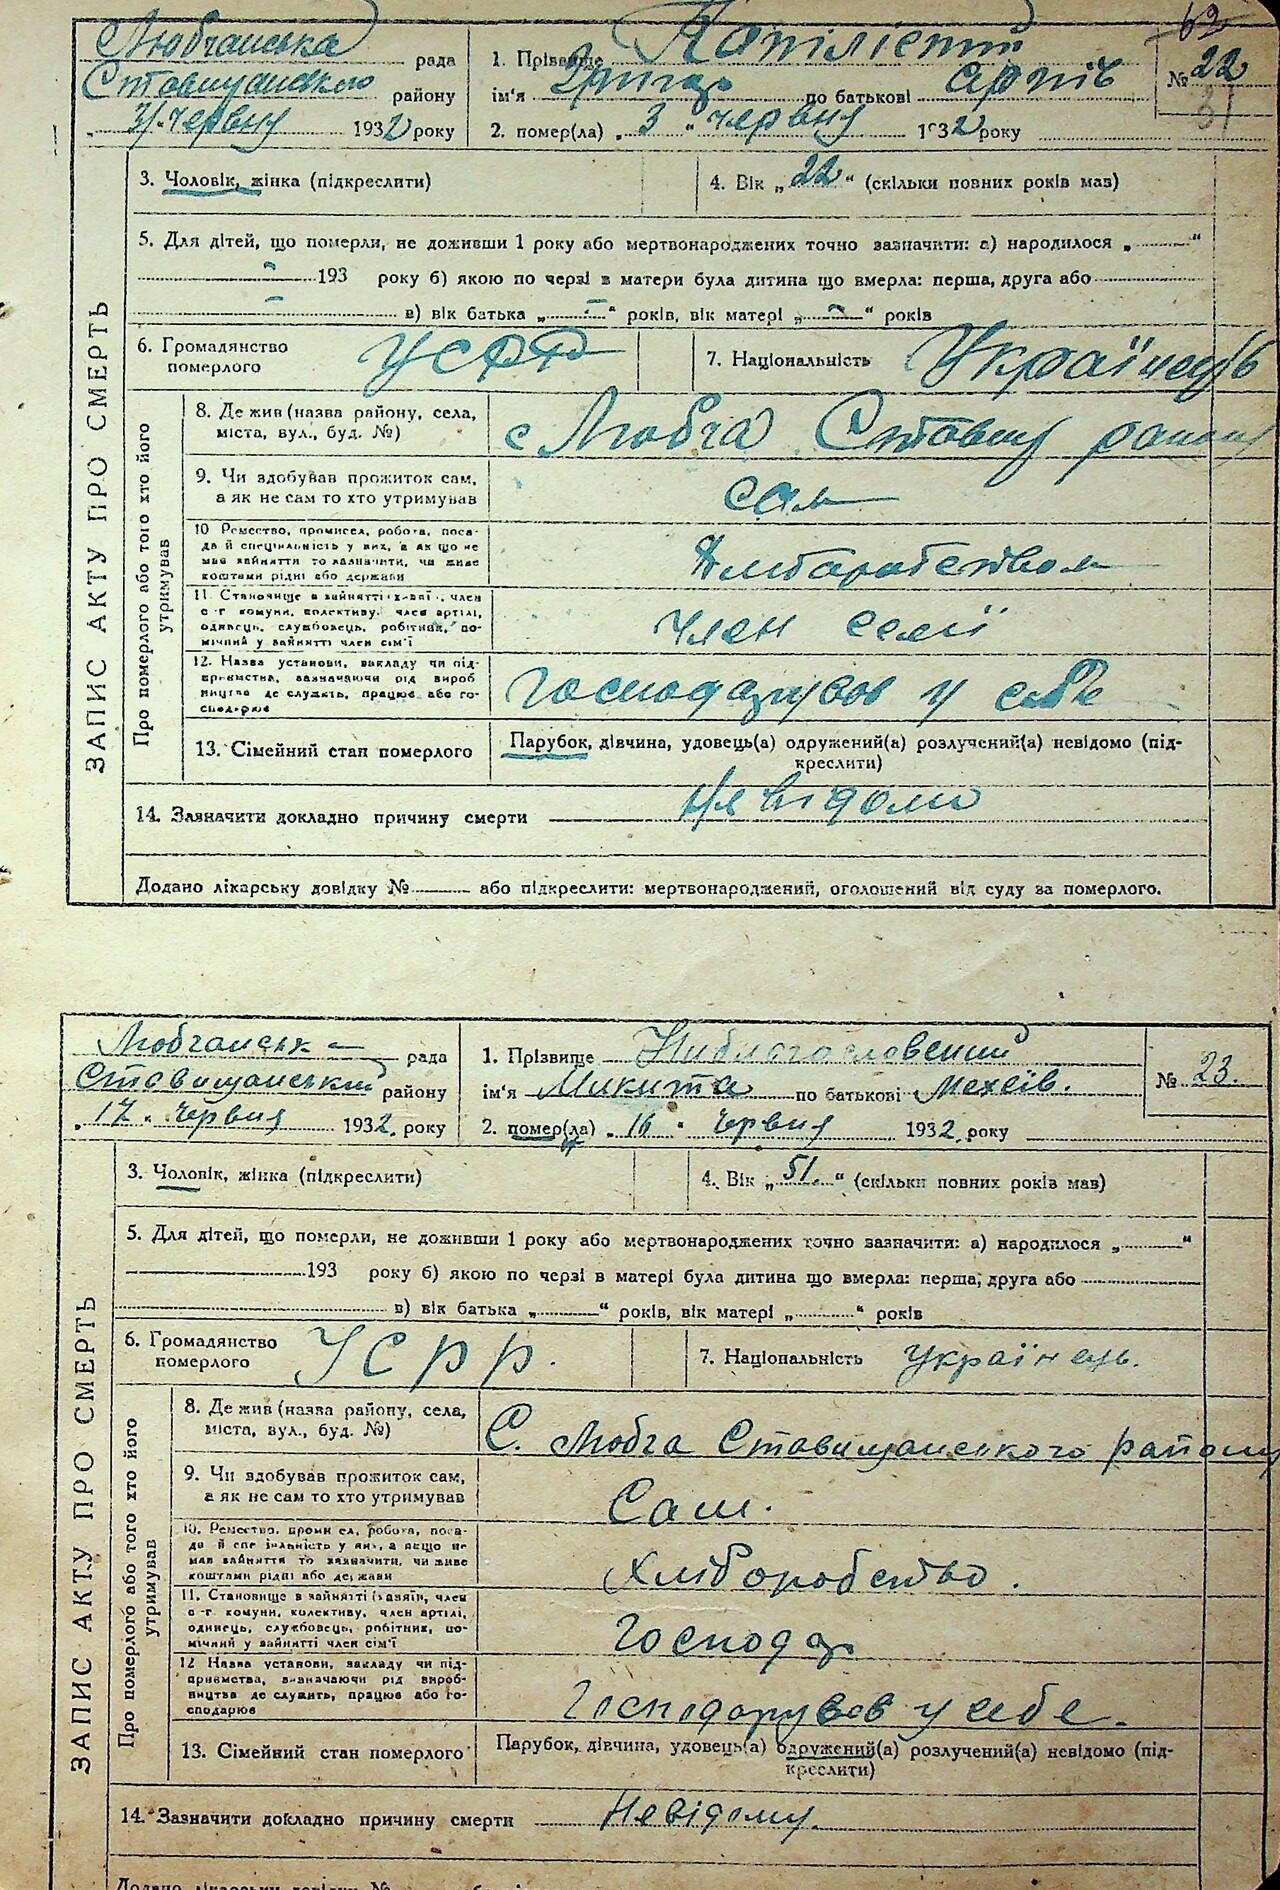 62
Любчанська рада
Ставищанського району
"3/" червня 1932 року
1. Прізвище
ім'я по батькові
2. помер(ла) "3" червня 1932 року
№ 22
31
3. Чоловік, жінка (підкреслити)
4. Вік „22“ (скільки повних років мав)
5. Для дітей, що померли, не доживши 1 року або мертвонароджених точно зазначити: а) народилося „ “
193 року б) якою по черзі в матери була дитина що вмерла: перша, друга або
в) вік батька „-“ років, вік матері „-“ років
6. Громадянство
померлого УСРР
7. Національність Українець
ЗАПИС АКТУ ПРО СМЕРТЬ
Про померлого або того хто його
утримував
8. Де жив (назва району, села,
міста, вул., буд. №)
с Любча Ставищ району
9. Чи здобував прожиток сам,
а як не сам то хто утримував
сам
10 Ремество, промисел, робота, поса-
да й спеціяльність у них, а як що не
мав зайняття то зазначити, чи живе
коштами рідні або держави
Хліборобством
11. Становище в зайнятті хазяїн, член
с-г комуни, колективу, член артілі,
одинець, службовець, робітник, по-
мічний у зайнятті член сім'ї
член семї
12. Назва установи, закладу чи під-
приємства, зазначаючи рід вироб
ництва де служить, працює або го-
сподарює
Господарував у себе
13. Сімейний стан померлого
Парубок, дівчина, удовець(а) одружений(а) розлучений(а) невідомо (під-
креслити)
14. Зазначити докладно причину смерти Не відомо
Додано лікарську довідку № або підкреслити: мертвонароджений, оголошений від суду за померлого.
Любчанська рада
Ставищанський району
"17" червня 1932 року
1. Прізвище Ниблагословенний
ім'я Микита по батькові Мехеїв.
2. помер(ла) "16" червня 1932 року
№ 23.
3. Чоловік, жінка (підкреслити)
4. Вік „51.“ (скільки повних років мав)
5. Для дітей, що померли, не доживши 1 року або мертвонароджених точно зазначити: а) народилося „ “
193 року б) якою по черзі в матері була дитина що вмерла: перша, друга або
в) вік батька „ “ років, вік матері „ “ років
6. Громадянство
померлого УСРР.
7. Національність українець.
ЗАПИС АКТУ ПРО СМЕРТЬ
Про померлого або того хто його
утримував
8. Де жив (назва району, села,
міста, вул., буд. №)
С. Любча Ставищанського району
9. Чи здобував прожиток сам,
а як не сам то хто утримував
Сам.
10. Ремество, промисел, робота, поса-
да й спеціяльність у них, а якщо не
мав зайняття то зазначити, чи живе
коштами рідні або держави
Хліборобство.
11. Становище в зайнятті (хазяїн, член
с-г комуни, колективу, член артілі,
одинець, службовець, робітник, по-
мічний у зайнятті член сім'ї
Господар
12 Назва установи, закладу чи під-
приємства, визначаючи рід вироб-
ництва де служить, працює або го-
сподарює
Господарував у себе.
13. Сімейний стан померлого
Парубок, дівчина, удовець(а) одружений(а) розлучений(а) невідомо (під-
креслити)
14. Зазначити докладно причину смерти Невідому.
Додано лікарську довідку №